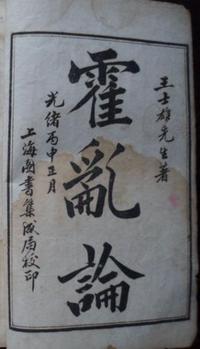 王士雄先生著
霍亂論
光緒丙申正月
上海圖書集成局校印